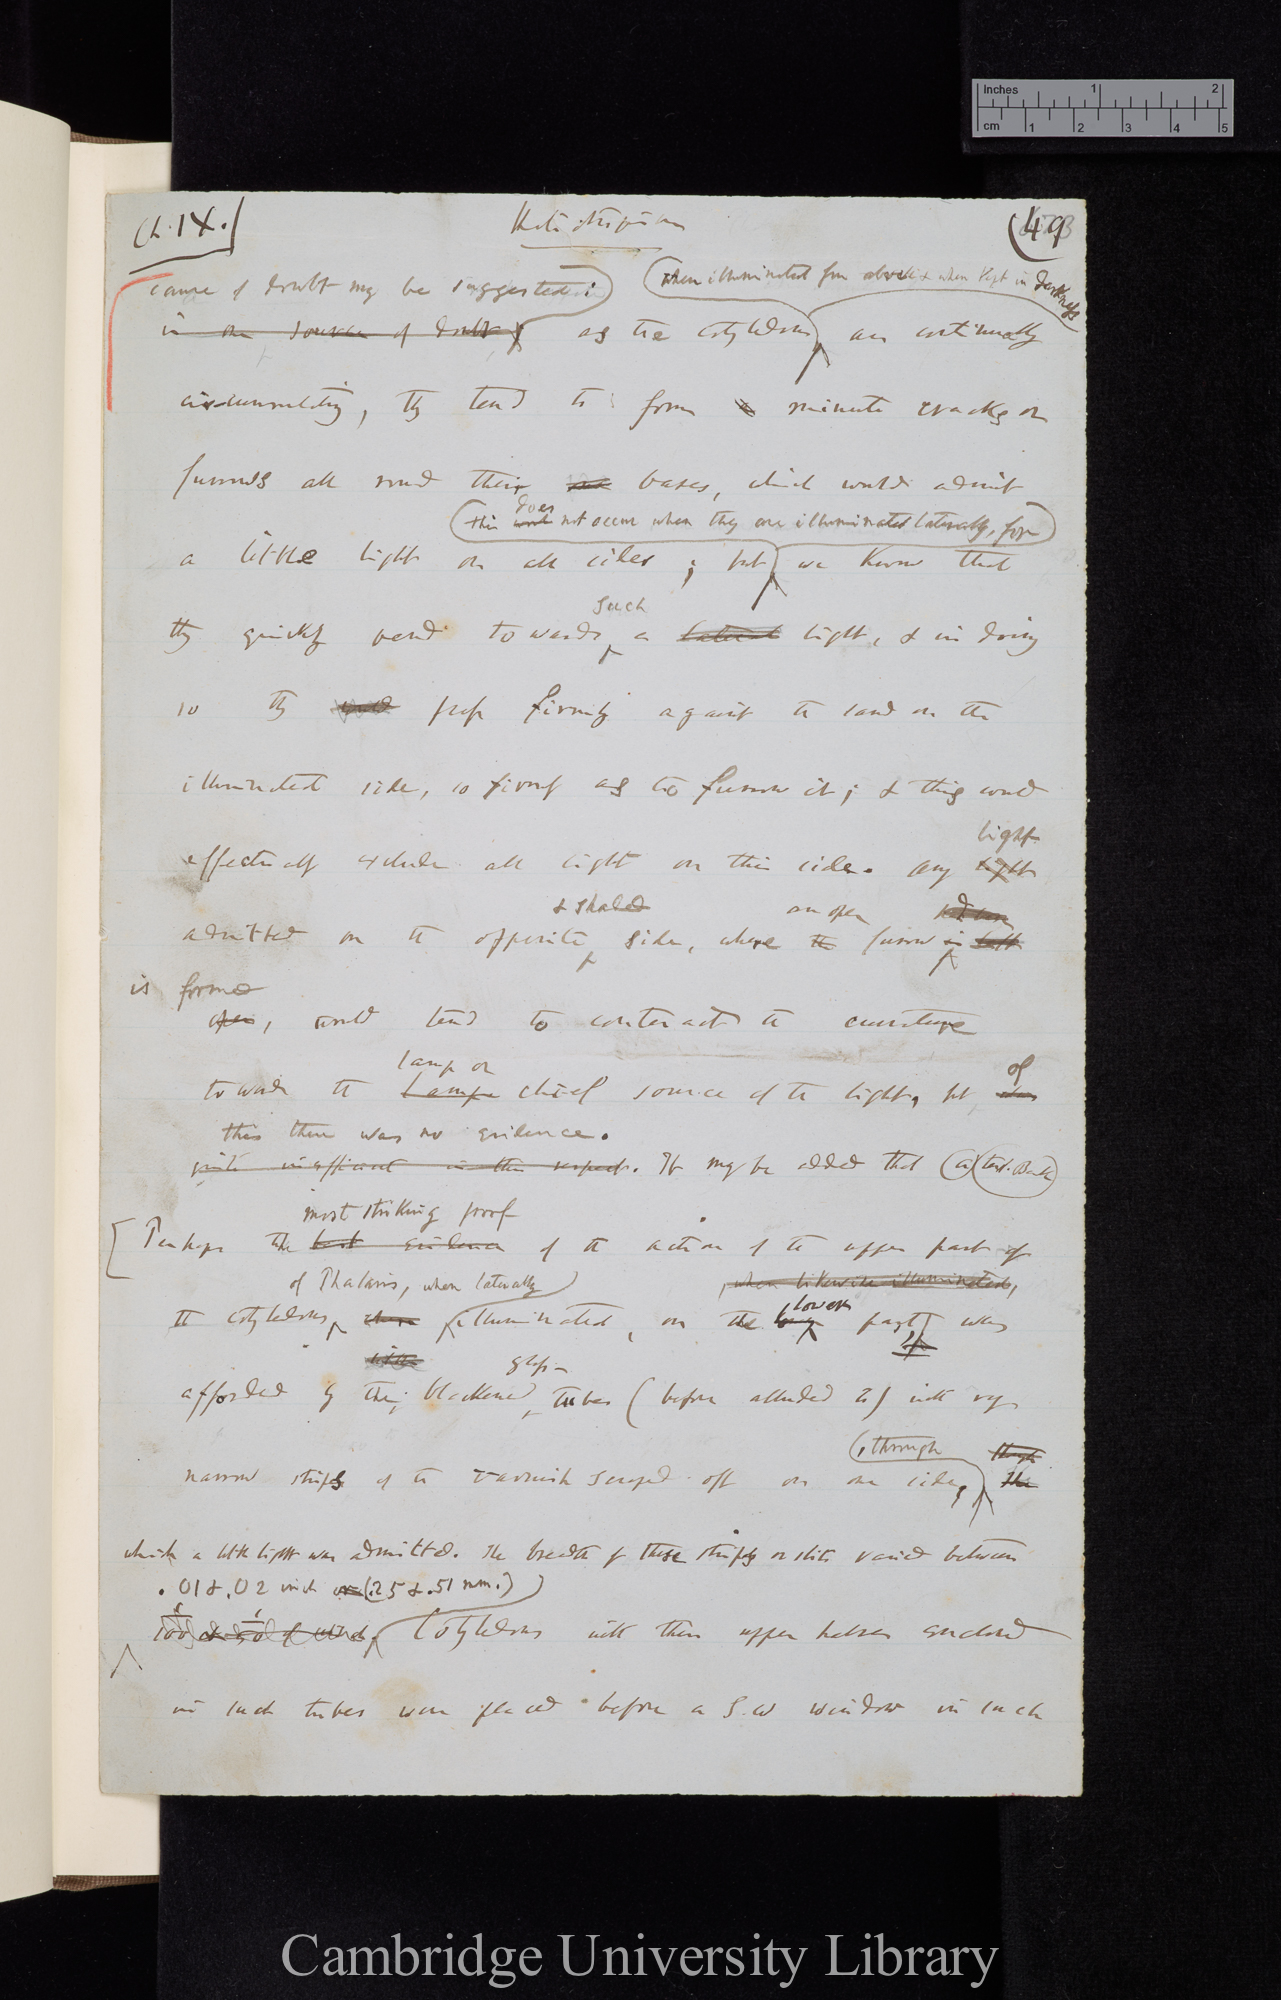 Inches 1 2
cm 1 2 3 4 5
Ch. IX.
Heliotropism
(49
cause of doubt may be suggested: (when illuminated from above & when kept in darkness
in one source of doubt, as the cotyledons are continually
circumnutating, they tend to form a minute cracks or
furrows all round their bases, which would admit
this does not occur when they are illuminated laterally, for
a little light on all sides; but we know that
such
they quickly bend towards a lateral light, & in doing
so they press firmly against the sand on the
illuminated side, so firmly as to furrow it; & this would
light
effectually exclude all light on this side. Any light
& shaded an open
admitted on the opposite side, where the furrow is left
is formed
open, would tend to counteract the curvature
lamp or of
towards the Lamp chief source of the light, but
this there was no evidence.
quite insufficient in this respect. It may be added that (a) (text. Back)
most striking proof
[Perhaps the best evidence of the action of the upper part of
of Phalaris, when laterally when likewise illuminated,
lower
the cotyledons, illuminated, on the part, was
glass
afforded by the blackened tubes (before alluded to) with very
, through
narrow stripes of the varnish scraped off on one side, the
which a little light was admitted. The breadth of these stripes or slits varied between
.01 & .02 inch or (.25 & .51 mm.)
1/100 & 1/50 of inch. Cotyledons with their upper halves enclosed
in such tubes were placed before a S.W window in such
Cambridge University Library